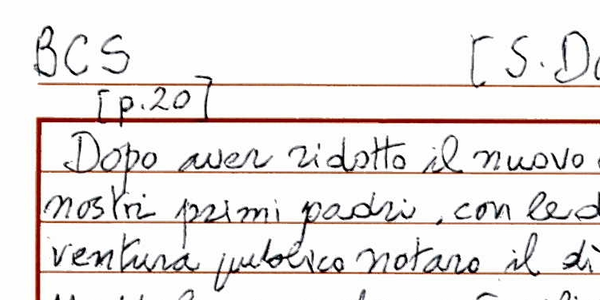 BCS [S. Do
[p. 20]
Dopo aver ridotto il nuovo
nostri primi padri, con le d
ventura publico notaro il dì